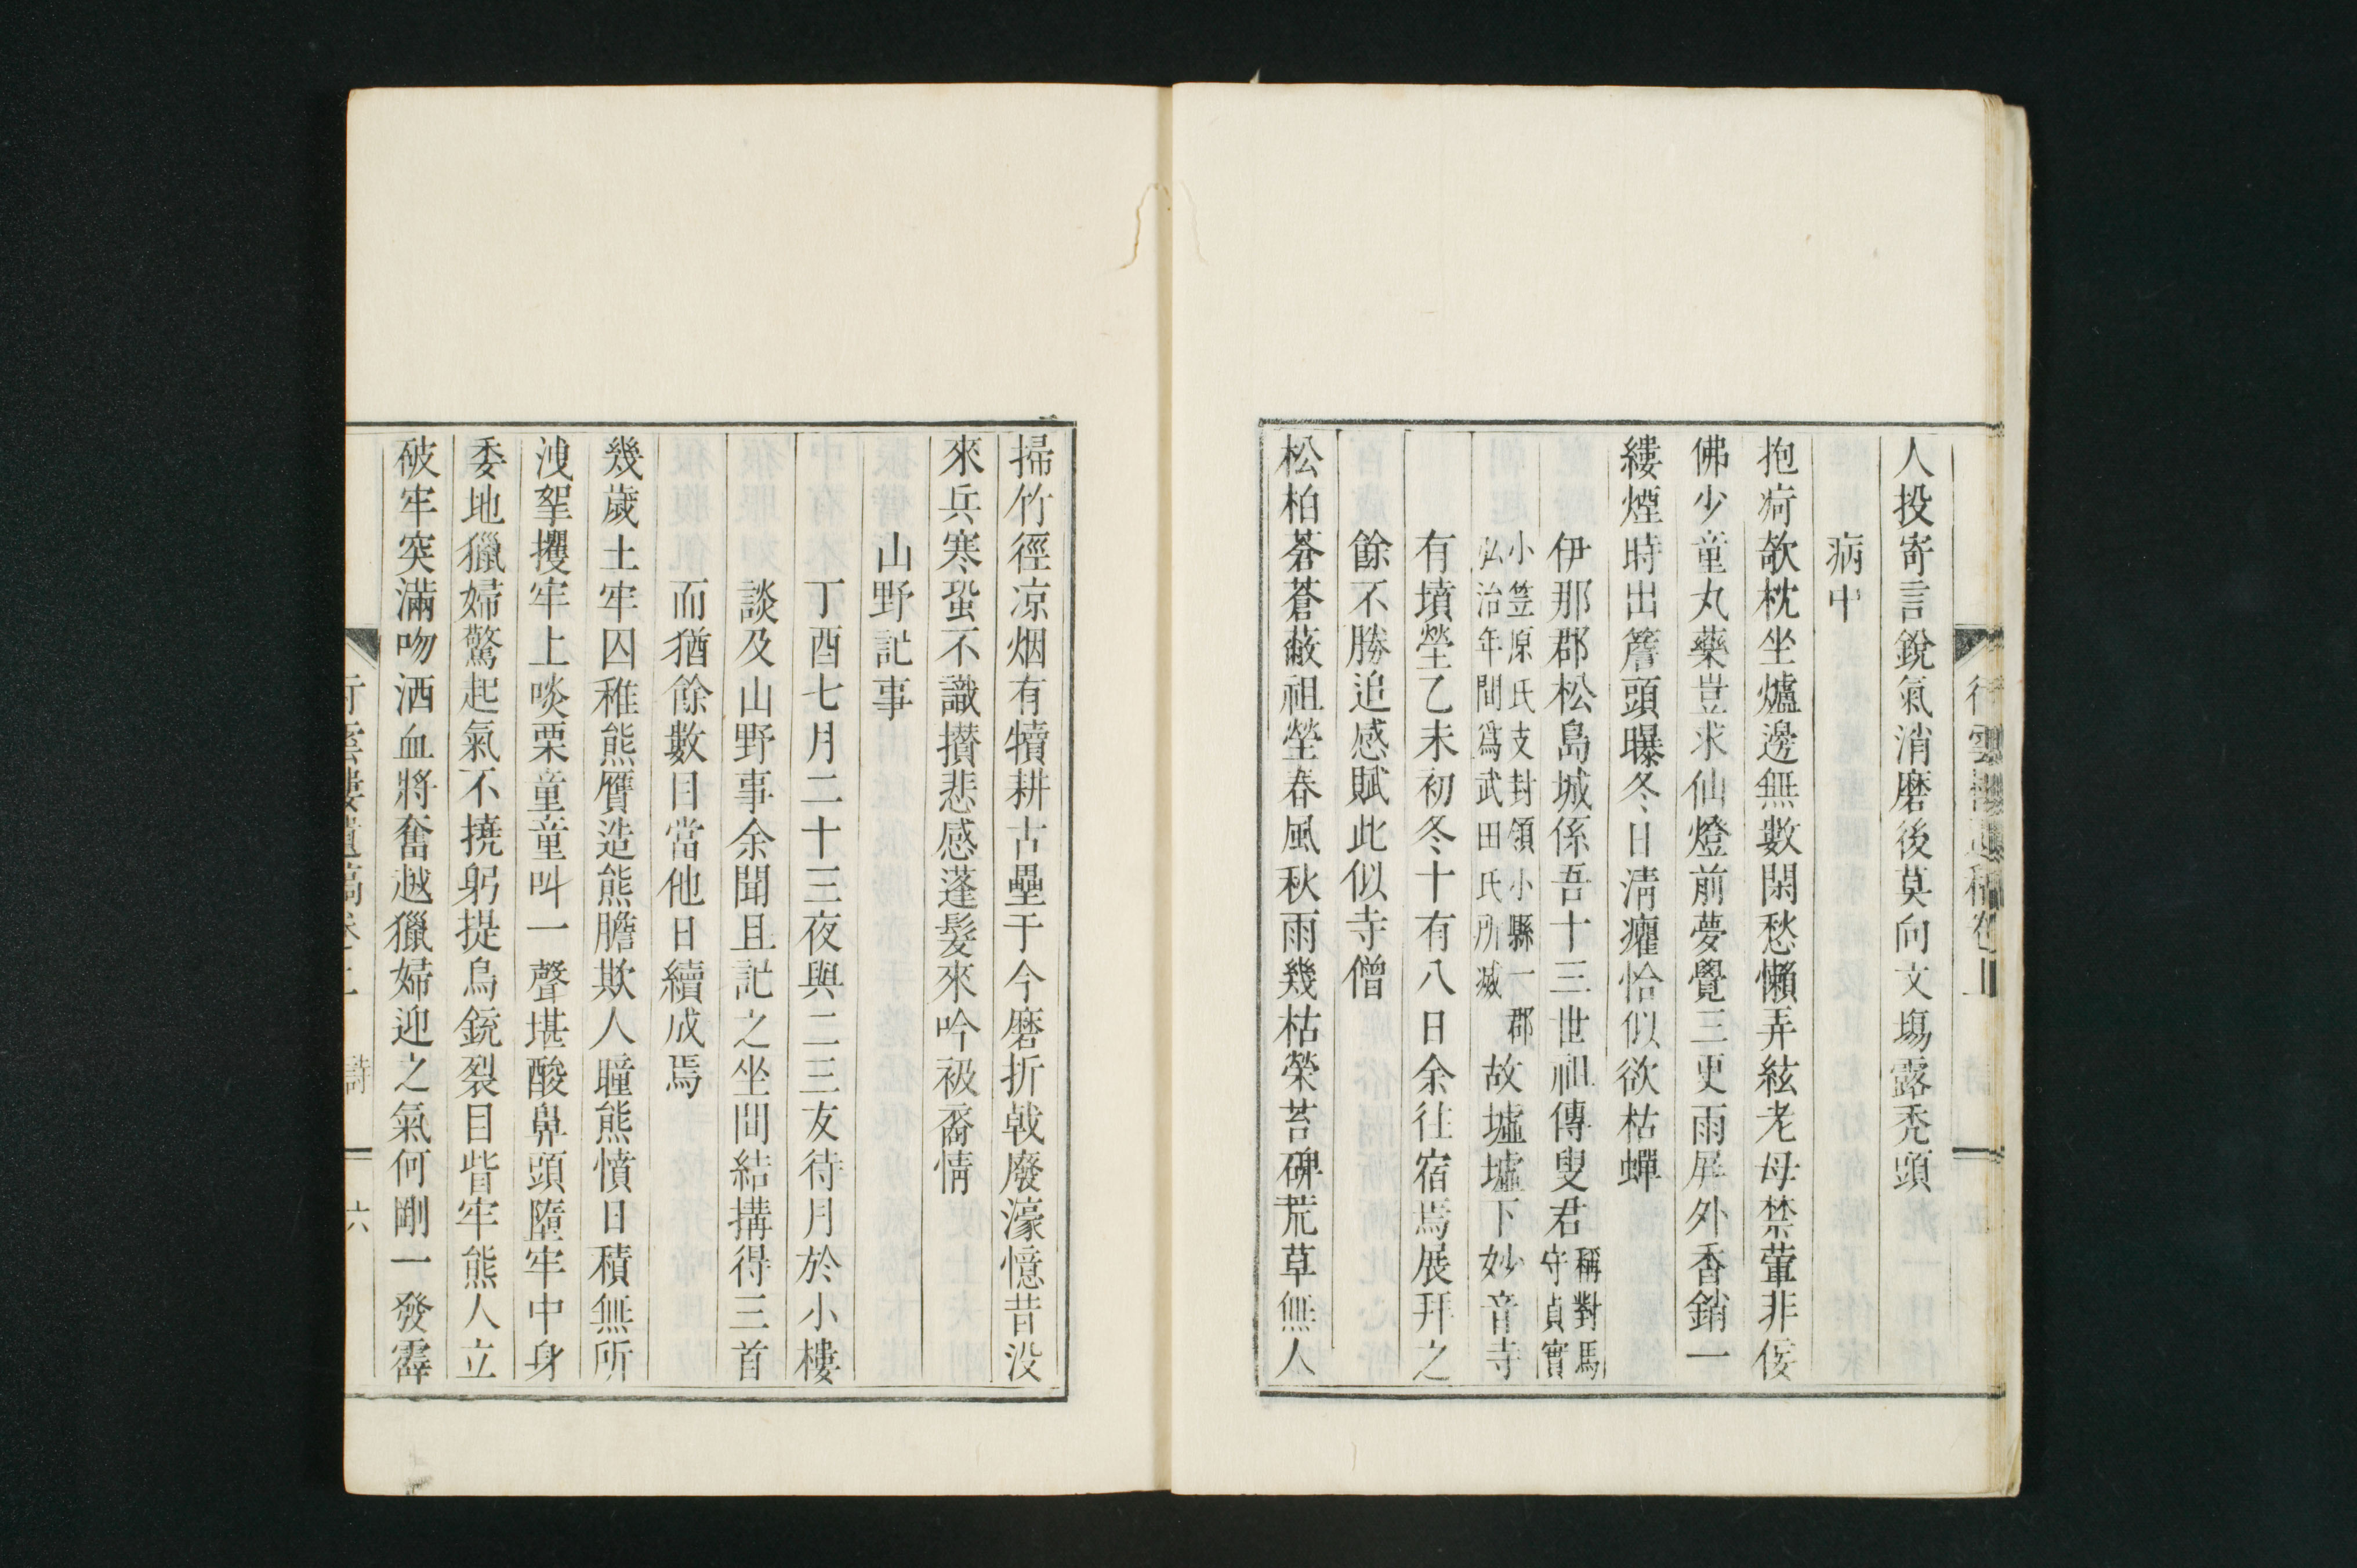 人投寄言銳氣消磨後莫向文塲露禿頭
病中
抱疴欹枕坐爐邊無數閑愁懶弄絃老母禁葷非佞
佛少童丸藥豈求仙燈前夢覺三更雨屏外香銷一
縷煙時出簷頭曝冬日淸癯恰似欲枯蟬
伊那郡松島城係吾十三世祖傳叟君稱對馬守貞實
小笠原氏支封領小縣一郡弘治年間爲武田氏所滅故墟墟下妙音寺
有墳塋乙未初冬十有八日余往宿焉展拜之
餘不勝追感賦此似寺僧
松柏蒼蒼蔽祖塋春風秋雨幾枯榮苔碑荒草無人
掃竹徑凉烟有犢耕古壘于今磨折戟廢濠憶昔没
來兵寒蛩不識攅悲感蓬髮來吟祓裔情
山野記事
丁酉七月二十三夜與二三友待月於小樓
談及山野事余聞且記之坐間結搆得三首
而猶餘數目當他日續成焉
幾歲土牢囚稚熊贋造熊膽欺人瞳熊憤日積無所
洩挐攫牢上啖栗童童叫一聲堪酸鼻頭墮牢中身
委地獵婦驚起氣不撓躬提鳥銃裂目眥牢熊人立
破牢突滿吻洒血將奮越獵婦迎之氣何剛一發霹
行雲樓遺稿卷上 詩 六